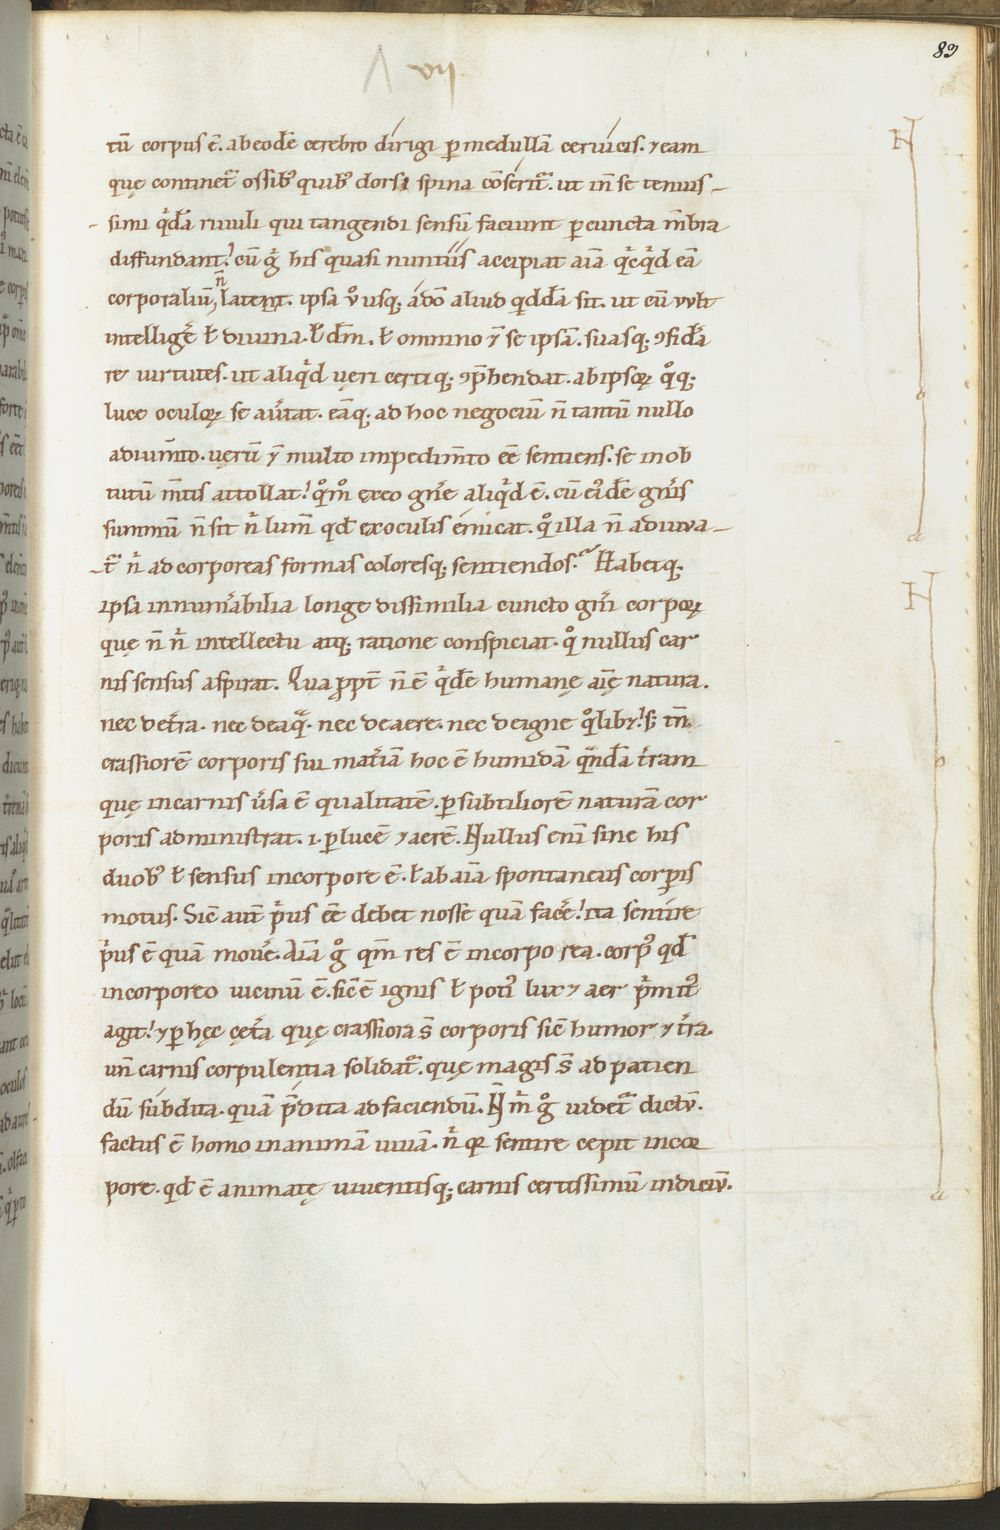 89
VII
tū corpus ē. ab eodē cerebro dirigi ꝑ medullā ceruicis. ⁊ eam
quę continet᷑ ossibꝰ quibꝰ dorsi spina cōserit᷑. ut in se tenuis-
simi qᷓdā riuuli qui tangendi sensū faciunt ꝑ cuncta mēbra
diffundant᷑. cū gͦ his quasi nuntiis accipiat aīa qͥcqͥd eā
corporaliū ñ latent. ipsa ꝟo usq; adō aliud qͥddā sit. ut cū uult
intellige᷑ ł diuina. ł dm̄. ł omnino ⁊ se ipsā. suasq; ꝯsidᷓa
re uirtutes. ut aliqͥd uęri certiq; ꝯp̄hendat. ab ipsoꝝ qͦq;
luce oculoꝝ se au᷑tat. eāq; ad hoc negociū n̄ tantū nullo
adium̄to. uęrū ⁊ multo impedim̄to eē sentiens. se in ob
tutū m̄tis attollat. qͦmͦ ex eo gn̄e aliqͥd ē. cū eiꝰdē gn̄is
summū n̄ sit nͥ lum̄ qd̄ ex oculis emicat. qͦ illa n̄ adiuua-
t᷑ nͥ ad corporeas formas coloresq; sentiendos. Habetq;
ipsa innum᷑abilia longe dissimilia cuncto gn̄i corpoꝝ
quę n̄ nͥ intellectu atq; ratione conspiciat. qͦ nullus car
nis sensus aspirat. Qua ꝓpt᷑ n̄ ē qͥdē humanę aīę natura.
nec de t᷑ra. nec de aqᷓ. nec de aere. nec de igne qͦlib⁊. s; tn̄
crassiorē corporis sui mat᷑iā hoc ē humidā qᷓndā t᷑ram
quę in carnis u᷑sa ē qualitatē. ꝑ subtiliorē naturā cor
poris administrat. i. ꝑ lucē ⁊ aerē. Nullus enī sine his
duobꝰ ł sensus in corpore ē. ł ab aīa spontaneus corꝑis
motus. Sic̄ aut̄ pͥus eē debet nosse quā face᷑. ita sentire
pͥus ē quā moue᷑. Aīa gͦ qm̄ res ē incorporea. corpꝰ qd̄
incorporeo uicinū ē. sic̄ ē ignis ł potiꝰ lux ⁊ aer pͥmitꝰ
agit. ⁊ ꝑ hęc cęt᷑a quę crassiora s̄ corporis sic̄ humor ⁊ t᷑ra
un̄ carnis corpulentia solidat᷑. quę magis s̄ ad patien
dū subdita. quā p̄dita ad faciendū. N̄ m̄ gͦ uidet᷑ dictū.
factus ē homo in animā uiuā. nͥ qꝛ sentire cepit in cor
pore. qd̄ ē animatę uiuentisq; carnis certissimū indiciū.